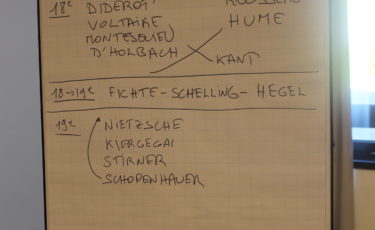 18e DIDEROT
VOLTAIRE HUME
MONTESQUIEU
D'HOLBACH
KANT
18→19e FICHTE-SCHELLING-HEGEL
19e NIETZSCHE
KIERGEGA
STIRNER
SCHOPENHAUER